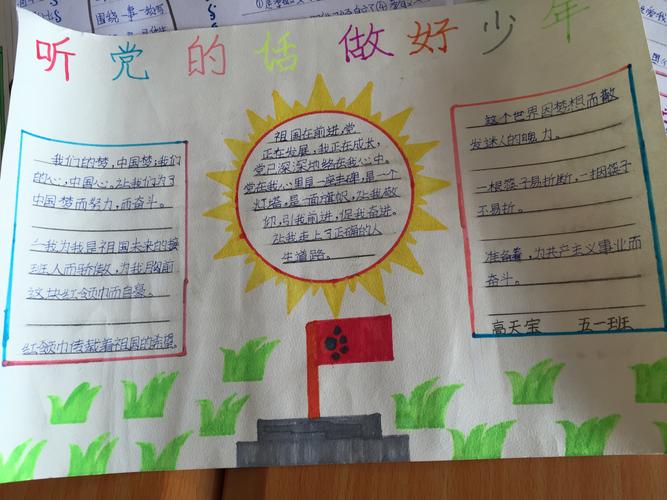 听党的话做好少年
我们的梦,中国梦,我们
的心,中国心,让我们为了
中国梦而努力,而奋斗。
我为我是祖国未来的接
班人而骄傲,为我胸前
这块红领巾而自豪。
红领巾传载着祖国的希望
祖国在前进,党
正在发展,我正在成长,
党已深深地烙在我心中。
党在我心里是一座丰碑,是一个
灯塔,是一面旗帜,让我敬
仰,引我前进,促我奋进。
让我走上了正确的人
生道路。
这个世界因梦想而散
发迷人的魄力。
一根筷子易折断,一捆筷子
不易折。
准备着,为共产主义事业而
奋斗。
高天宝 五一班